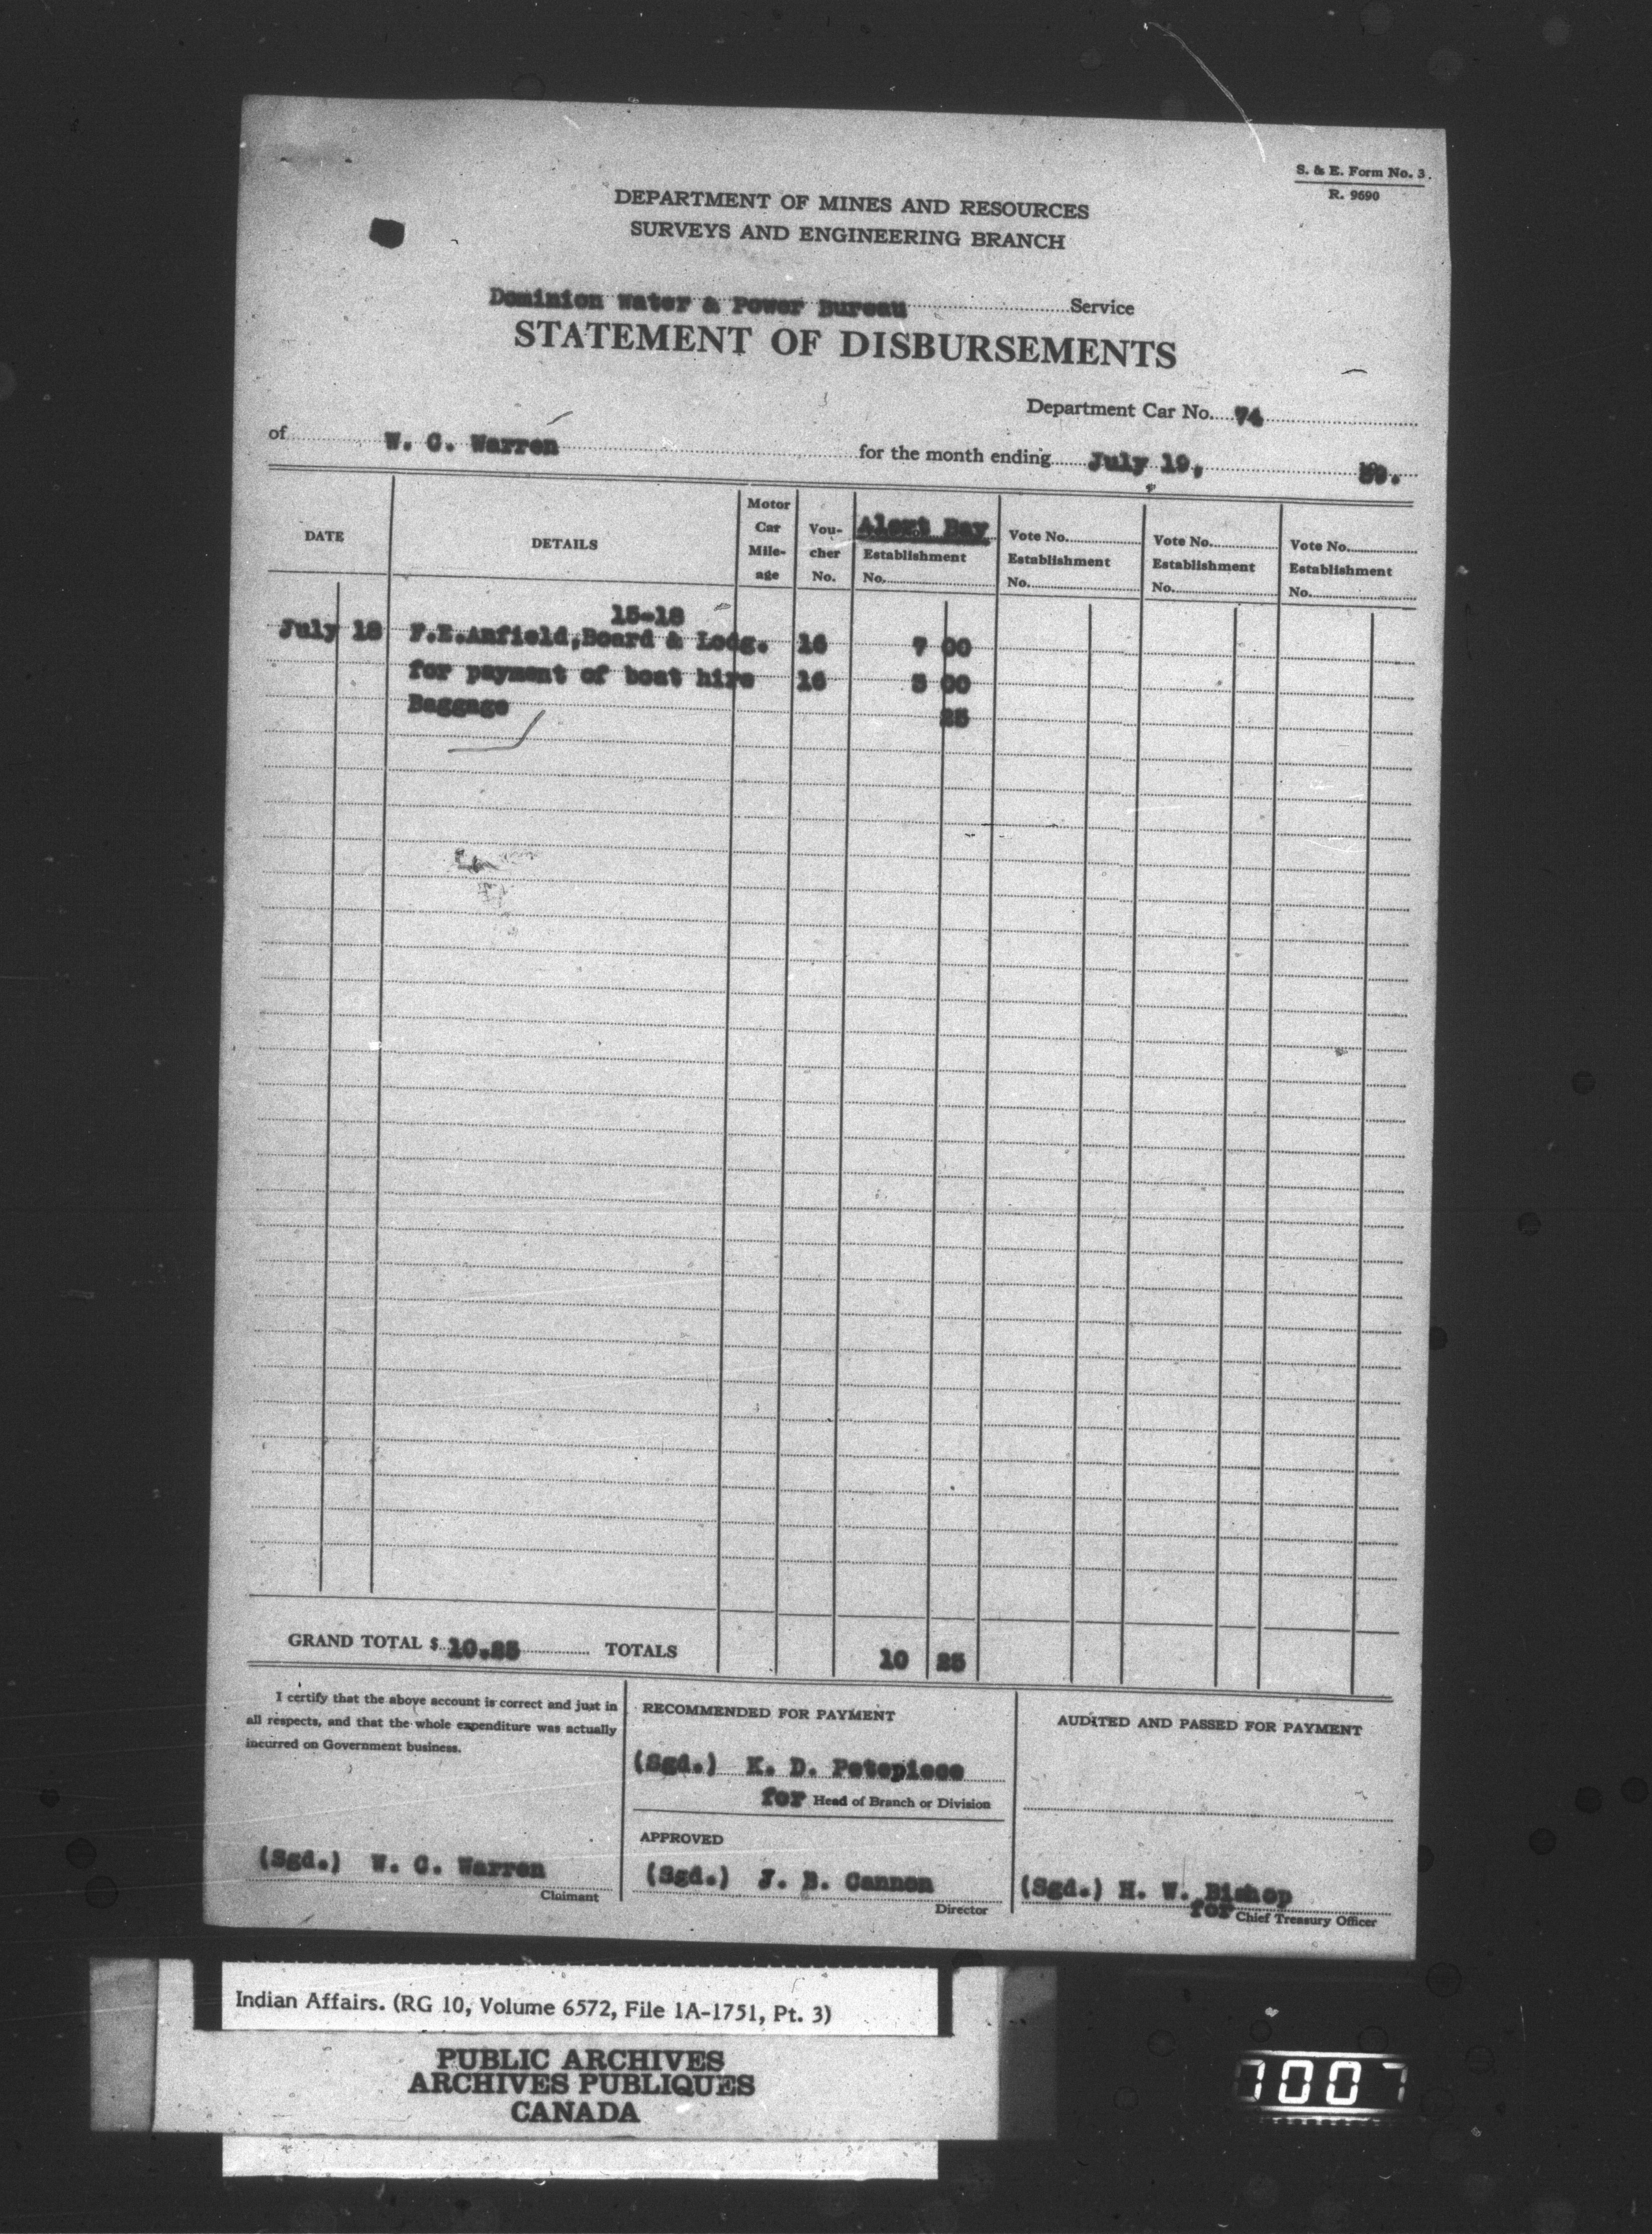 S. & E. Form No. 3.
R. 9690
DEPARTMENT OF MINES AND RESOURCES
SURVEYS AND ENGINEERING BRANCH
Dominion Water & Power Bureau Service
STATEMENT OF DISBURSEMENTS
Department Car No. 74
of W. C. Warren for the month ending July 19, 39.
DATE DETAILS Motor Car Mile-age Vou-cher No. Alert Bay Establishment No. Vote No. Establishment No. Vote No. Establishment No. Vote No. Establishment No.
15-18
July 18 F.E.Anfield,Board & Lodg. 16 7 00
for payment of boat hire 16 3 00
Baggage 25
GRAND TOTAL $ 10.25 TOTALS 10 25
I certify that the above account is correct and just in
all respects, and that the whole expenditure was actually
incurred on Government business.
(Sgd.) W. C. Warren
Claimant
RECOMMENDED FOR PAYMENT
(Sgd.) K. D. Petepiece
for Head of Branch or Division
APPROVED
(Sgd.) J. B. Cannon
Director
AUDITED AND PASSED FOR PAYMENT
(Sgd.) H. W. Bishop
for Chief Treasury Officer
Indian Affairs. (RG 10, Volume 6572, File 1A-1751, Pt. 3)
PUBLIC ARCHIVES
ARCHIVES PUBLIQUES
CANADA
7007